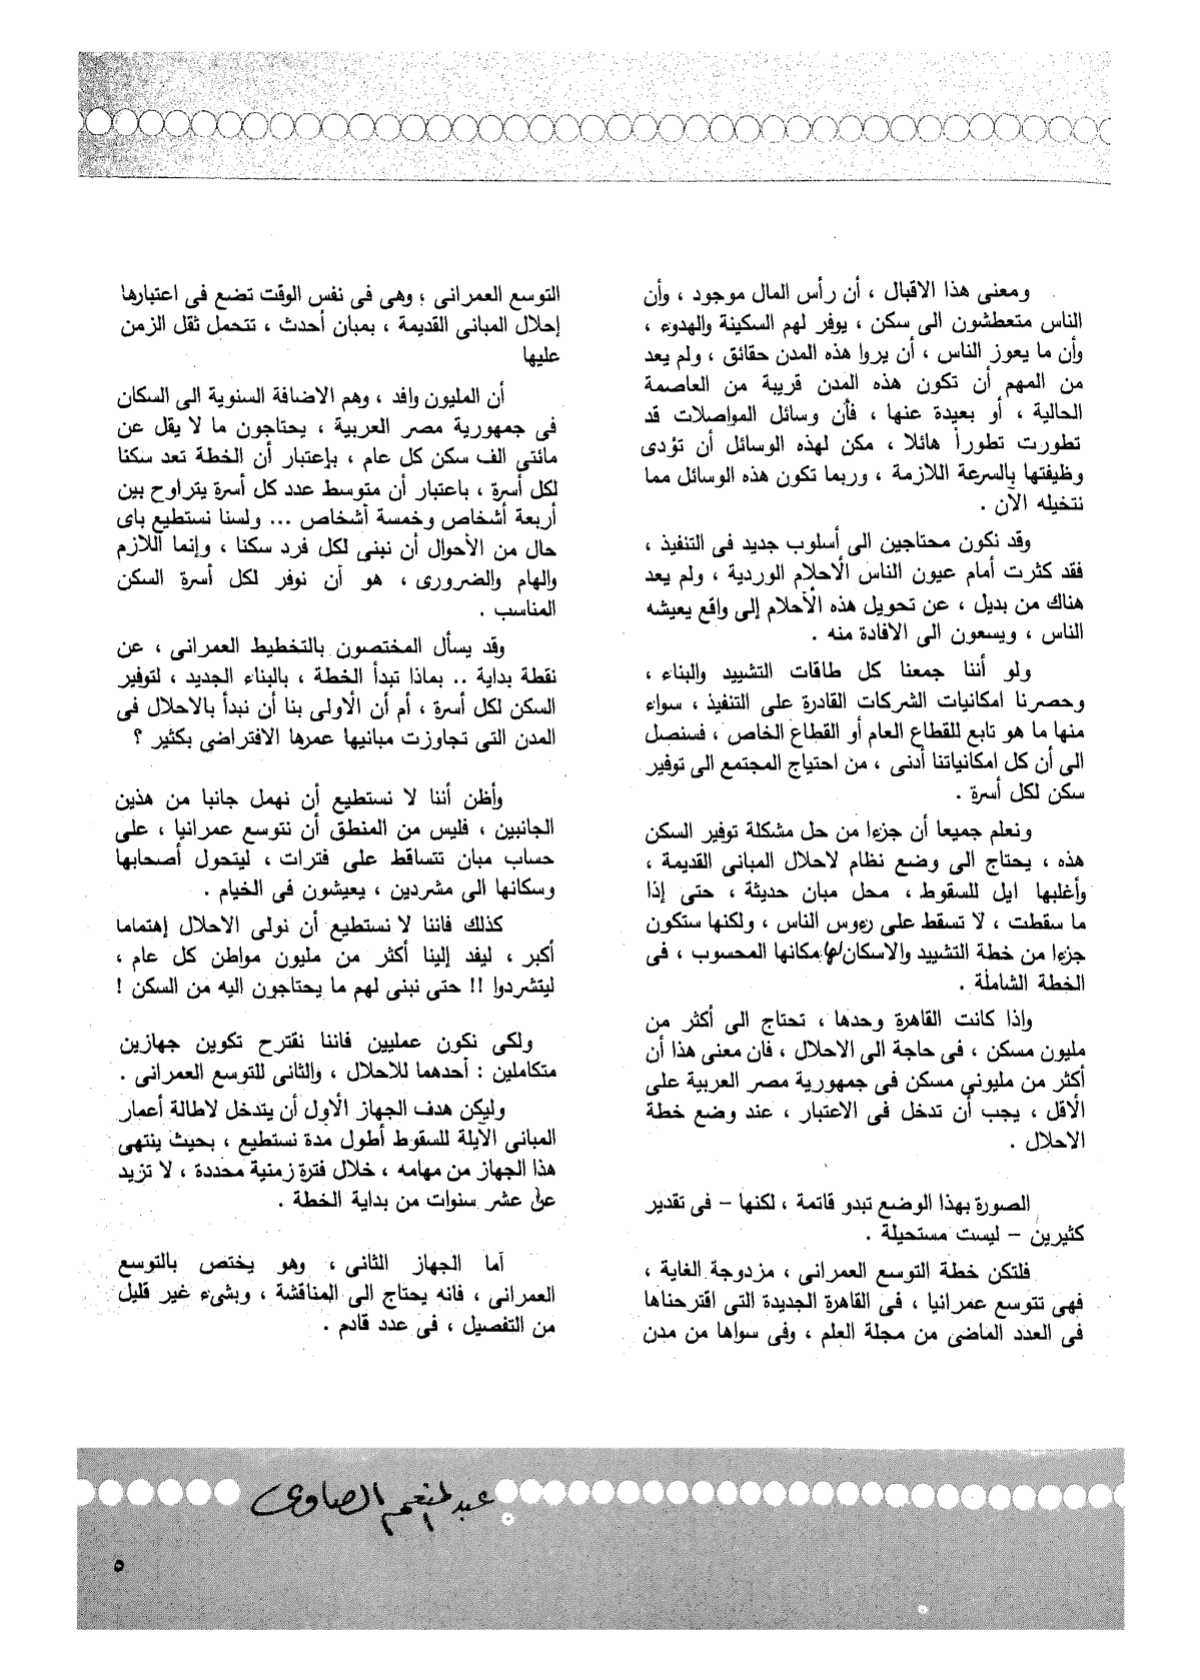 ومعنى هذا الاقبال ، أن رأس المال موجود ، وأن
الناس متعطشون الى سكن ، يوفر لهم السكينة والهدوء ،
وأن ما يعوز الناس ، أن يروا هذه المدن حقائق ، ولم يعد
من المهم أن تكون هذه المدن قريبة من العاصمة
الحالية ، أو بعيدة عنها ، فأن وسائل المواصلات قد
تطورت تطوراً هائلا ، مكن لهذه الوسائل أن تؤدى
وظيفتها بالسرعة اللازمة ، وربما تكون هذه الوسائل مما
نتخيله الآن .
وقد نكون محتاجين الى أسلوب جديد فى التنفيذ ،
فقد كثرت أمام عيون الناس الأحلام الوردية ، ولم يعد
هناك من بديل ، عن تحويل هذه الأحلام إلى واقع يعيشه
الناس ، ويسعون الى الافادة منه .
ولو أننا جمعنا كل طاقات التشييد والبناء ،
وحصرنا امكانيات الشركات القادرة على التنفيذ ، سواء
منها ما هو تابع للقطاع العام أو القطاع الخاص ، فسنصل
الى أن كل امكانياتنا أدنى ، من احتياج المجتمع الى توفير
سكن لكل أسرة .
ونعلم جميعا أن جزءا من حل مشكلة توفير السكن
هذه ، يحتاج الى وضع نظام لاحلال المبانى القديمة ،
وأغلبها ايل للسقوط ، محل مبان حديثة ، حتى إذا
ما سقطت ، لا تسقط على رءوس الناس ، ولكنها ستكون
جزءا من خطة التشييد والاسكان لها مكانها المحسوب ، فى
الخطة الشاملة .
واذا كانت القاهرة وحدها ، تحتاج الى أكثر من
مليون مسكن ، فى حاجة الى الاحلال ، فان معنى هذا أن
أكثر من مليونى مسكن فى جمهورية مصر العربية على
الأقل ، يجب أن تدخل فى الاعتبار ، عند وضع خطة
الاحلال .
الصورة بهذا الوضع تبدو قاتمة ، لكنها – فى تقدير
كثيرين – ليست مستحيلة .
فلتكن خطة التوسع العمرانى ، مزدوجة الغاية ،
فهى تتوسع عمرانيا ، فى القاهرة الجديدة التى اقترحناها
فى العدد الماضى من مجلة العلم ، وفى سواها من مدن
التوسع العمرانى ؛ وهى فى نفس الوقت تضع فى اعتبارها
إحلال المبانى القديمة ، بمبان أحدث ، تتحمل ثقل الزمن
عليها
أن المليون وافد ، وهم الاضافة السنوية الى السكان
فى جمهورية مصر العربية ، يحتاجون ما لا يقل عن
مائتى الف سكن كل عام ، بإعتبار أن الخطة تعد سكنا
لكل أسرة ، باعتبار أن متوسط عدد كل أسرة يتراوح بين
أربعة أشخاص وخمسة آشخاص ... ولسنا نستطيع باى
حال من الأحوال أن نبنى لكل فرد سكنا ، وإنما اللازم
والهام والضرورى ، هو أن نوفر لكل أسرة السكن
المناسب .
وقد يسأل المختصون بالتخطيط العمرانى ، عن
نقطة بداية .. بماذا تبدأ الخطة ، بالبناء الجديد ، لتوفير
السكن لكل أسرة ، أم أن الأولى بنا أن نبدأ بالاحلال فى
المدن التى تجاوزت مبانيها عمرها الافتراضى بكثير ؟
وأظن أننا لا نستطيع أن نهمل جانبا من هذين
الجانبين ، فليس من المنطق أن نتوسع عمرانيا ، على
حساب مبان تتساقط على فترات ، ليتحول أصحابها
وسكانها الى مشردين ، يعيشون فى الخيام .
كذلك فاننا لا نستطيع أن نولى الاحلال إهتماما
أكبر ، ليفد إلينا أكثر من مليون مواطن كل عام ،
ليتشردوا !! حتى نبنى لهم ما يحتاجون اليه من السكن !
ولكى نكون عمليين فاننا نقترح تكوين جهازين
متكاملين : أحدهما للاحلال ، والثانى للتوسع العمرانى .
وليكن هدف الجهاز الأول أن يتدخل لاطالة أعمار
المبانى الآيلة للسقوط أطول مدة نستطيع ، بحيث ينتهى
هذا الجهاز من مهامه ، خلال فترة زمنية محددة ، لا تزيد
على عشر سنوات من بداية الخطة .
أما الجهاز الثانى ، وهو يختص بالتوسع
العمرانى ، فانه يحتاج الى المناقشة ، وبشىء غير قليل
من التفصيل ، فى عدد قادم .
عبد المنعم الصاوى
٥